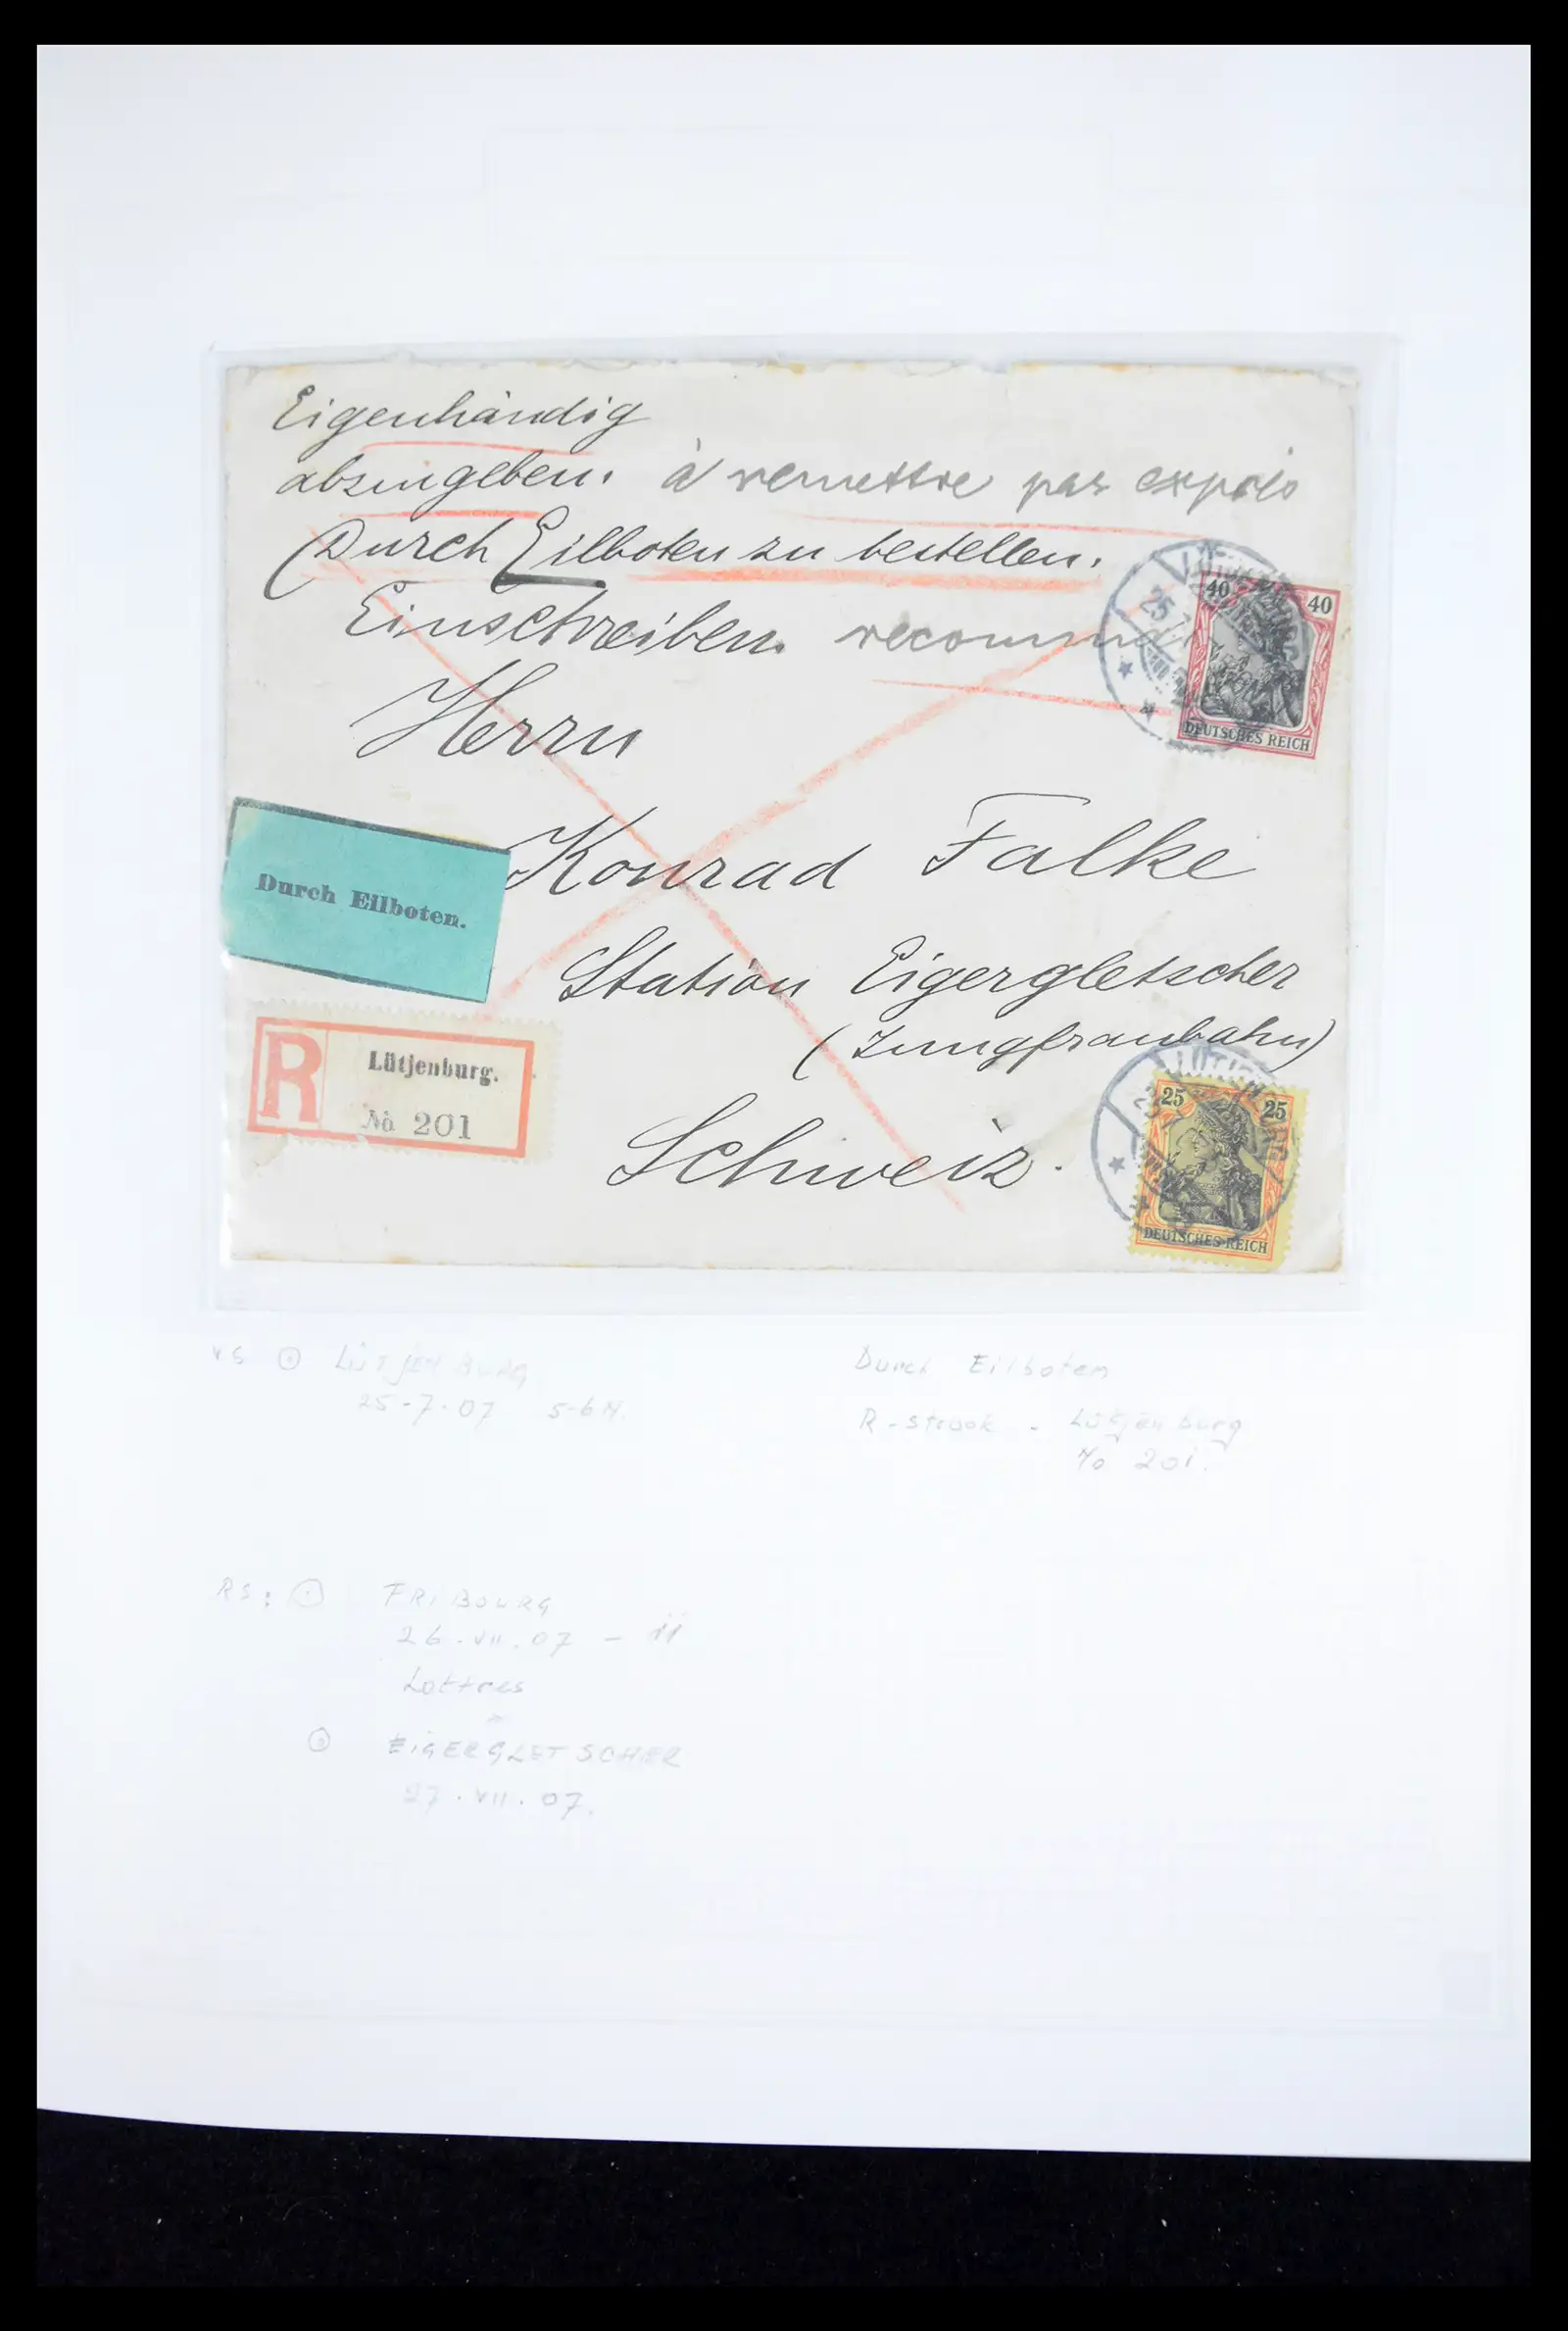 Eigenhändig
abzugeben. à remettre par exprès
(Durch Eilboten zu bestellen.
Einschreiben. recomm
Herrn
Konrad Falke
Station Eigergletscher
(Jungfraubahn)
Schweiz.
Durch Eilboten.
R Lütjenburg.
No 201
40 40
DEUTSCHES REICH
25
25 25
DEUTSCHES REICH
VS LÜTJENBURG
25-7-07 5-6 N.
Durch Eilboten
R-strook - Lütjenburg
No 201.
RS: FRIBOURG
26.VII.07 - 11
Lettres
EIGERGLETSCHER
27.VII.07.